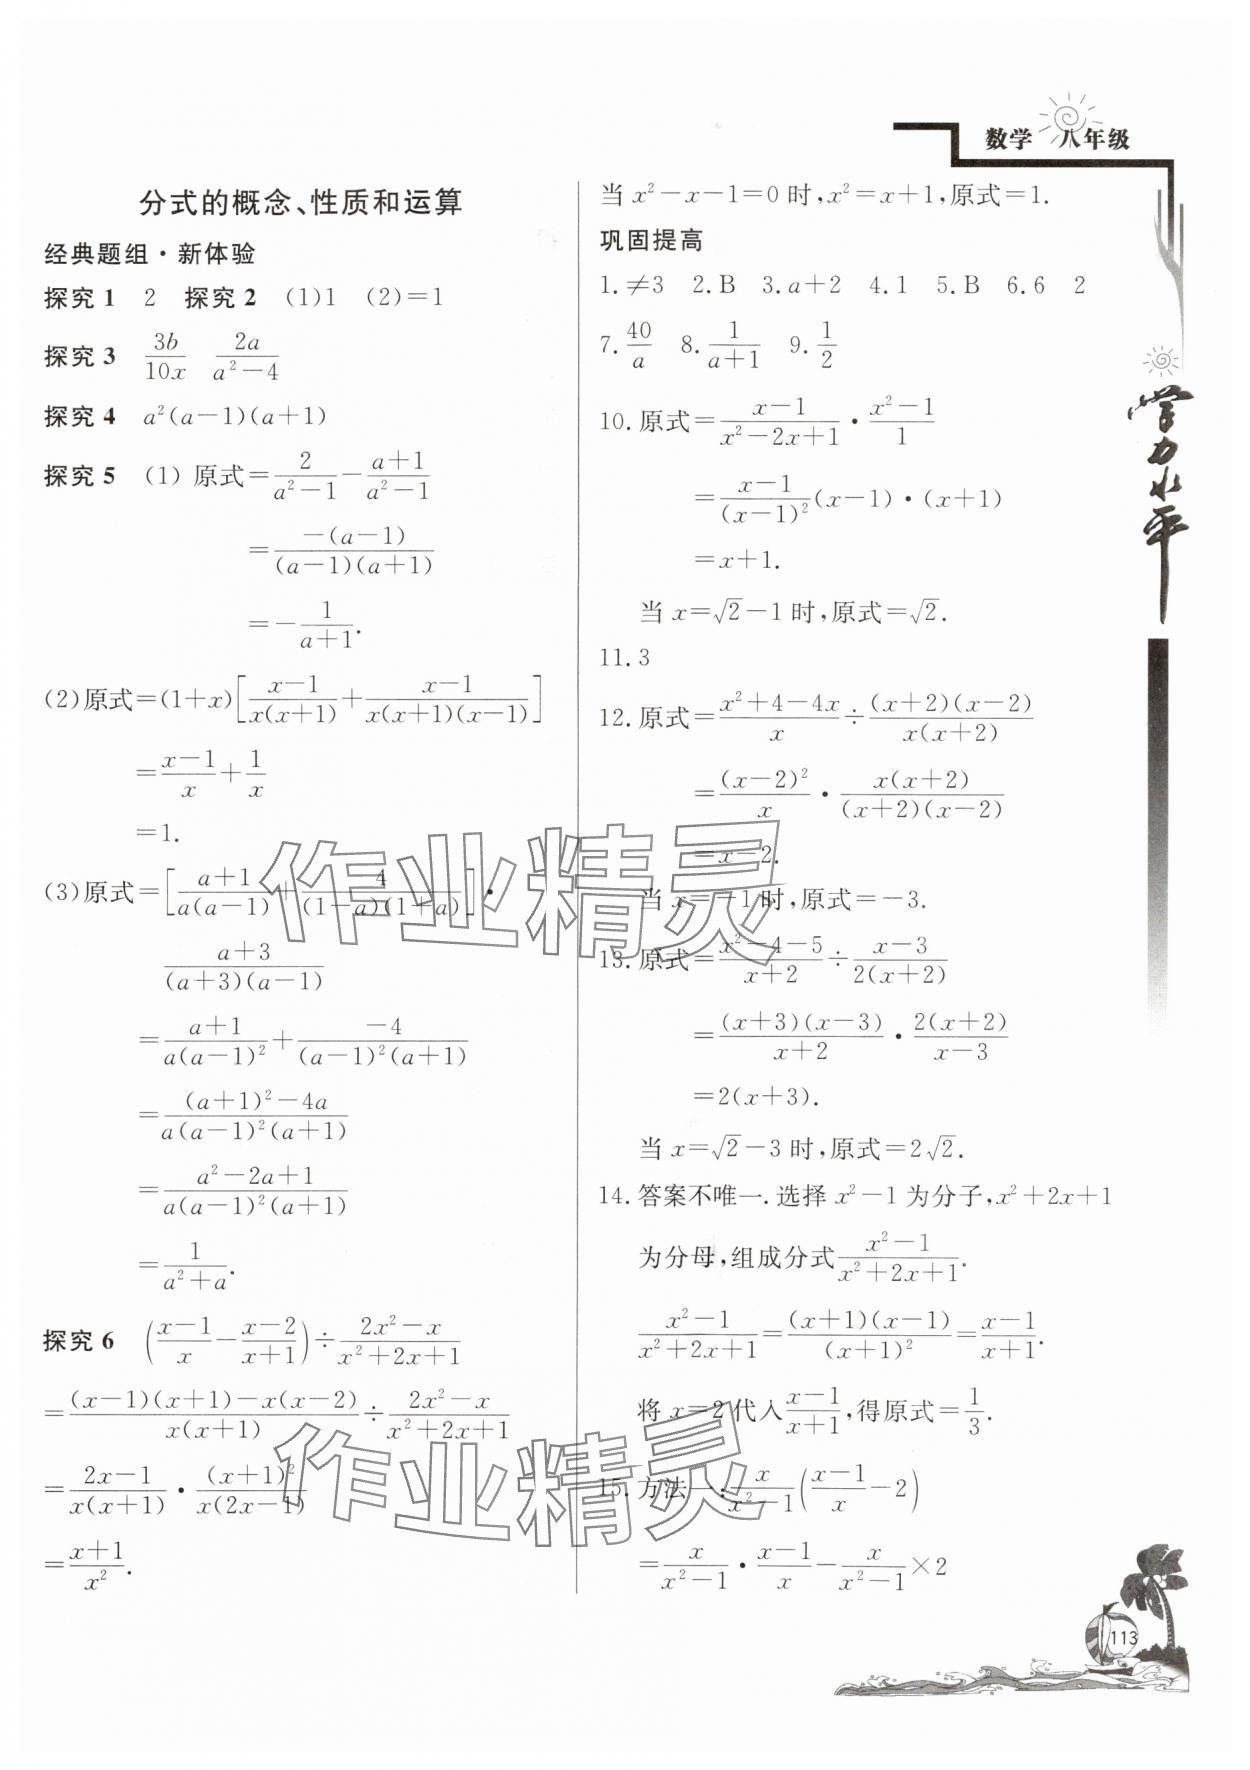 数学 八年级
分式的概念、性质和运算
经典题组·新体验
探究1 2 探究2 (1)1 (2)=1
探究3 3b/10x 2a/(a²-4)
探究4 a²(a-1)(a+1)
探究5 (1) 原式=2/(a²-1)-(a+1)/(a²-1)
=-(a-1)/((a-1)(a+1))
=-1/(a+1).
(2)原式=(1+x)[(x-1)/(x(x+1))+(x-1)/(x(x+1)(x-1))]
=(x-1)/x+1/x
=1.
(3)原式=[(a+1)/(a(a-1))+4/((1-a)(1+a))]·
(a+3)/((a+3)(a-1))
=(a+1)/(a(a-1)²)+(-4)/((a-1)²(a+1))
=((a+1)²-4a)/(a(a-1)²(a+1))
=(a²-2a+1)/(a(a-1)²(a+1))
=1/(a²+a).
探究6 ((x-1)/x-(x-2)/(x+1))÷(2x²-x)/(x²+2x+1)
=((x-1)(x+1)-x(x-2))/(x(x+1))÷(2x²-x)/(x²+2x+1)
=(2x-1)/(x(x+1))·(x+1)²/(x(2x-1))
=(x+1)/x².
当 x²-x-1=0 时,x²=x+1,原式=1.
巩固提高
1.≠3 2.B 3.a+2 4.1 5.B 6.6 2
7.40/a 8.1/(a+1) 9.1/2
10.原式=(x-1)/(x²-2x+1)·(x²-1)/1
=(x-1)/(x-1)²(x-1)·(x+1)
=x+1.
当 x=√2-1 时,原式=√2.
11.3
12.原式=(x²+4-4x)/x÷((x+2)(x-2))/(x(x+2))
=(x-2)²/x·(x(x+2))/((x+2)(x-2))
=x-2.
当 x=-1时,原式=-3.
13.原式=(x²-4-5)/(x+2)÷(x-3)/(2(x+2))
=((x+3)(x-3))/(x+2)·(2(x+2))/(x-3)
=2(x+3).
当 x=√2-3 时,原式=2√2.
14.答案不唯一.选择 x²-1 为分子,x²+2x+1
为分母,组成分式(x²-1)/(x²+2x+1).
(x²-1)/(x²+2x+1)=((x+1)(x-1))/(x+1)²=(x-1)/(x+1).
将 x=2代入(x-1)/(x+1),得原式=1/3.
15.方法一:x/(x²-1)((x-1)/x-2)
=x/(x²-1)·(x-1)/x-x/(x²-1)×2
学力水平
113
作业精灵
作业精灵